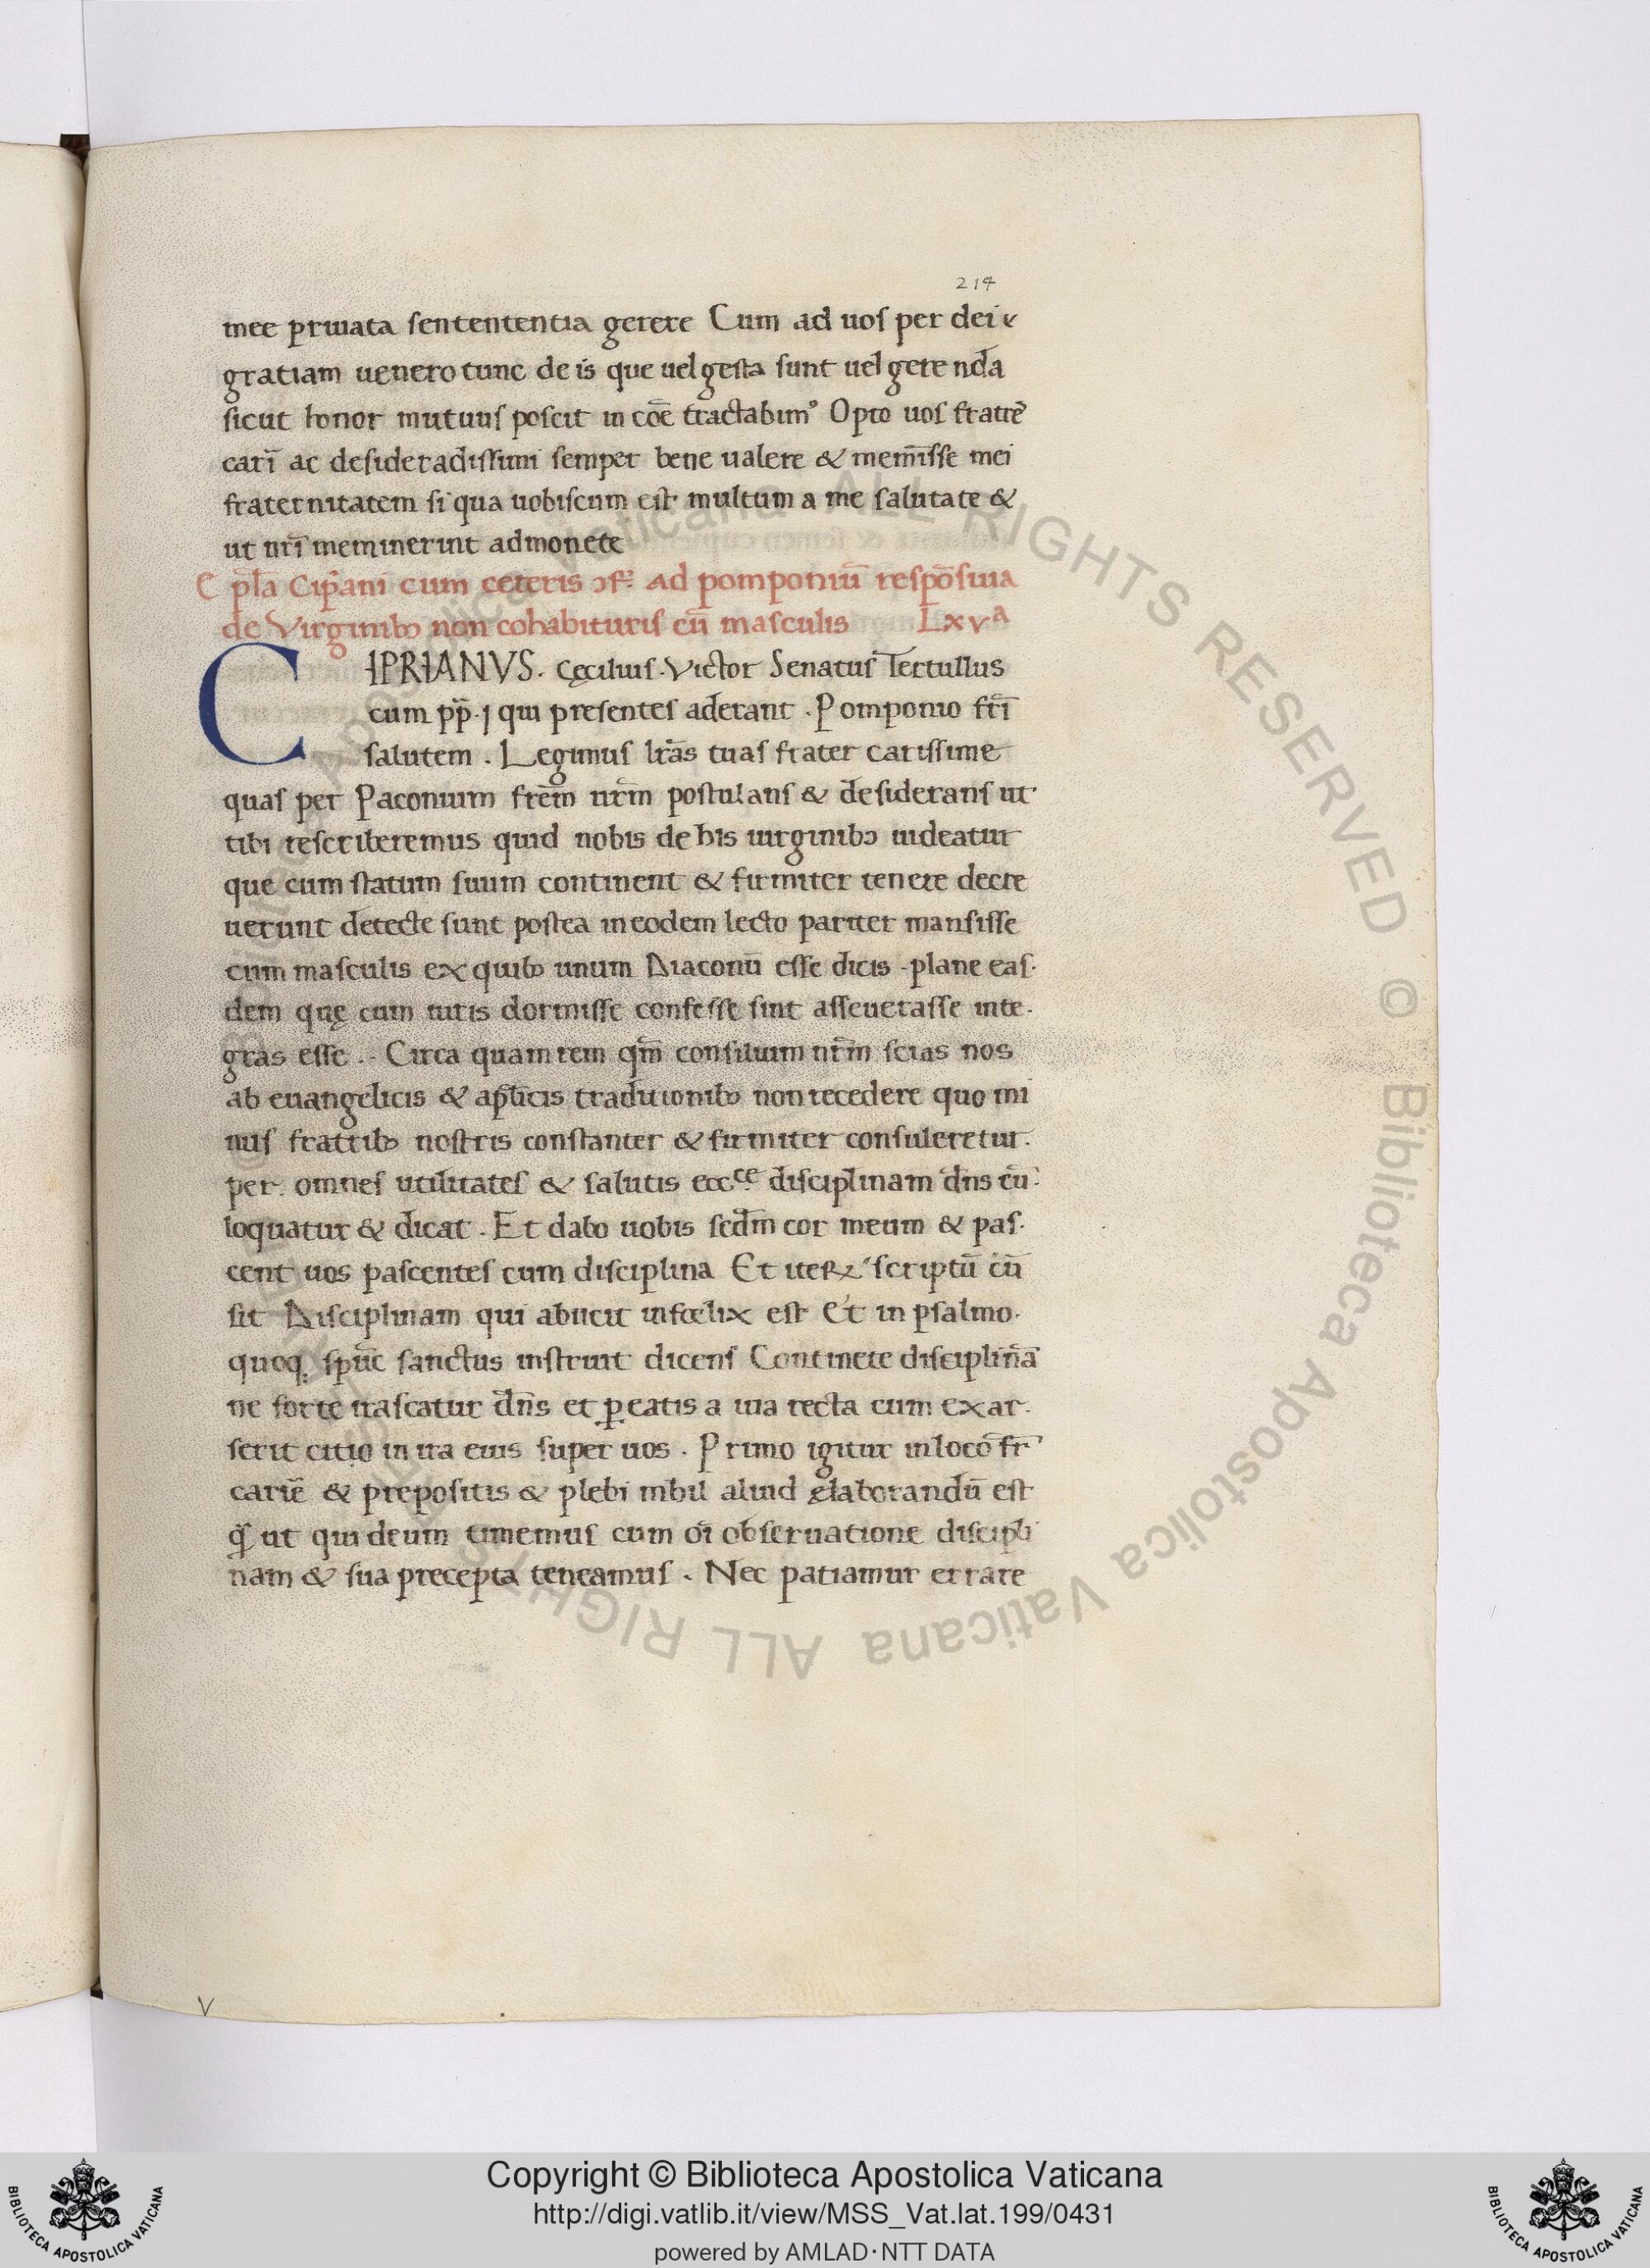 214
mee priuata sentententia gerere Cum ad uos per dei
gratiam uenero tunc de is que uel gesta sunt uel gerenda
sicut honor mutuus poscit in cōe tractabim᷒ Opto uos fratrē
cari̅ ac desideradissimi semper bene ualere & mem̅isse mei
fraternitatem si qua uobiscum est multum a me salutate &
ut nr̅i meminerint admonete
Epl̅a Cip̅ani cum ceteris ad pomponiū respōsiua
de Virginibꝫ non cohabituris cū masculis Lxvᵃ
CIPRIANVS. Cęcilius. Victor Senatus Tertullus
cum pp̅. j qui presentes aderant. Pomponio fr̅i
salutem. Legimus lr̅as tuas frater carissime
quas per Paconium frēm nr̅m postulans & desiderans ut
tibi rescriberemus quid nobis de his uirginibꝫ uideatur
que cum statum suum continent & firmiter tenere decre
uerunt detecte sunt postea in eodem lecto pariter mansisse
cum masculis ex quibꝫ unum Diaconū esse dicis. plane eas.
dem quę cum uiris dormisse confesse sint asseuerasse inte.
gras esse. Circa quam rem qm̅ consilium nr̅m scias nos
ab euangelicis & apl̅icis traditionibꝫ non recedere quo mi
nus fratribꝫ nostris constanter & firmiter consuleretur.
per. omnes utilitates & salutis eccᶜᵉ disciplinam dn̅s cū.
loquatur & dicat. Et dabo uobis scdm̅ cor meum & pas.
cent uos pascentes cum disciplina Et iteꝝ scriptū cū
sit Disciplinam qui abiicit infœlix est Et in psalmo.
quoqꝫ sanctus instruit dicens Continete disciplinā
ne forte irascatur dn̅s et ꝑeatis a uia recta cum exar.
serit citio in ira eius super uos. Primo igitur in loco fr̅
cariē & prepositis & plebi nihil aliud elaborandū est
ꝙ ut qui deum timemus cum oi̅ obseruatione discipli
nam & sua precepta teneamus. Nec patiamur errare
V
© Biblioteca Apostolica Vaticana ALL RIGHTS RESERVED © Biblioteca Apostolica Vaticana ALL RIGHTS
Copyright © Biblioteca Apostolica Vaticana
http://digi.vatlib.it/view/MSS_Vat.lat.199/0431
powered by AMLAD·NTT DATA
BIBLIOTECA APOSTOLICA VATICANA
BIBLIOTECA APOSTOLICA VATICANA